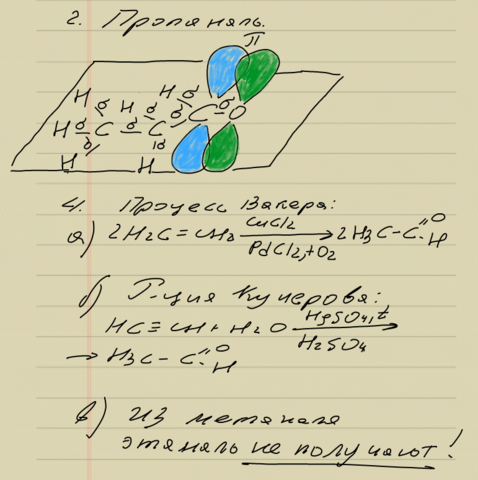 2. Пропаналь.
π
H H H σ
H σ C σ C σ C σ O
H H
4. Процесс Вакера:
а) 2H2C=CH2 CuCl2 PdCl2,+O2 → 2H3C-C=O H
б) Р-ция Кучерова:
HC≡CH+H2O HgSO4,t H2SO4 →
→ H3C-C=O H
в) Из метаналя
этаналь не получают!